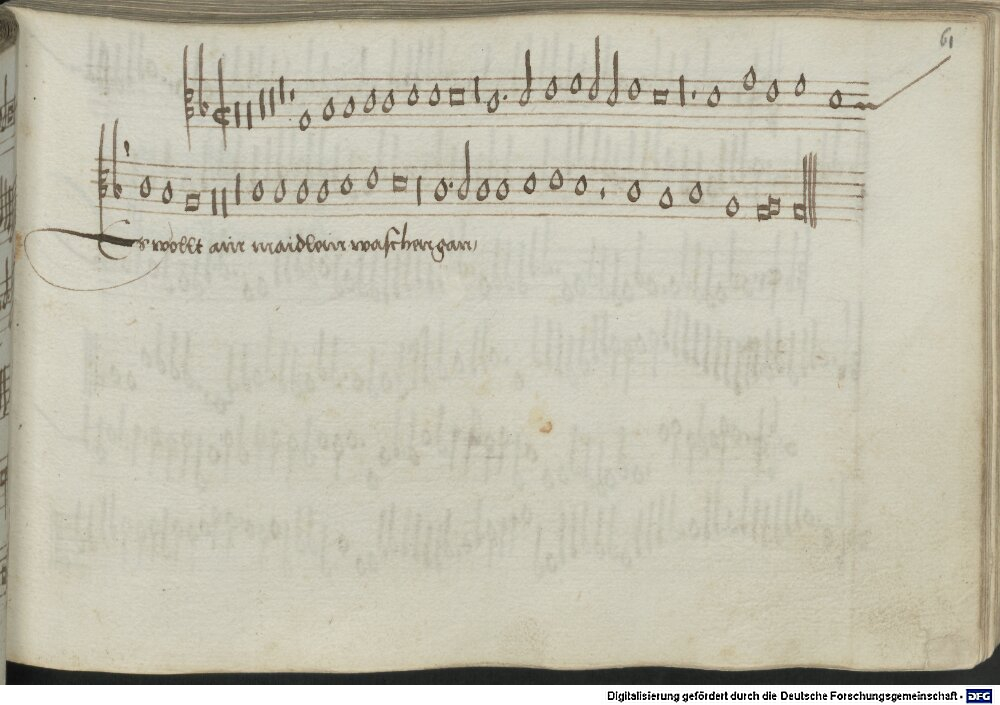 61
Es wollt ain maidlein waschen gan
Digitalisierung gefördert durch die Deutsche Forschungsgemeinschaft - DFG